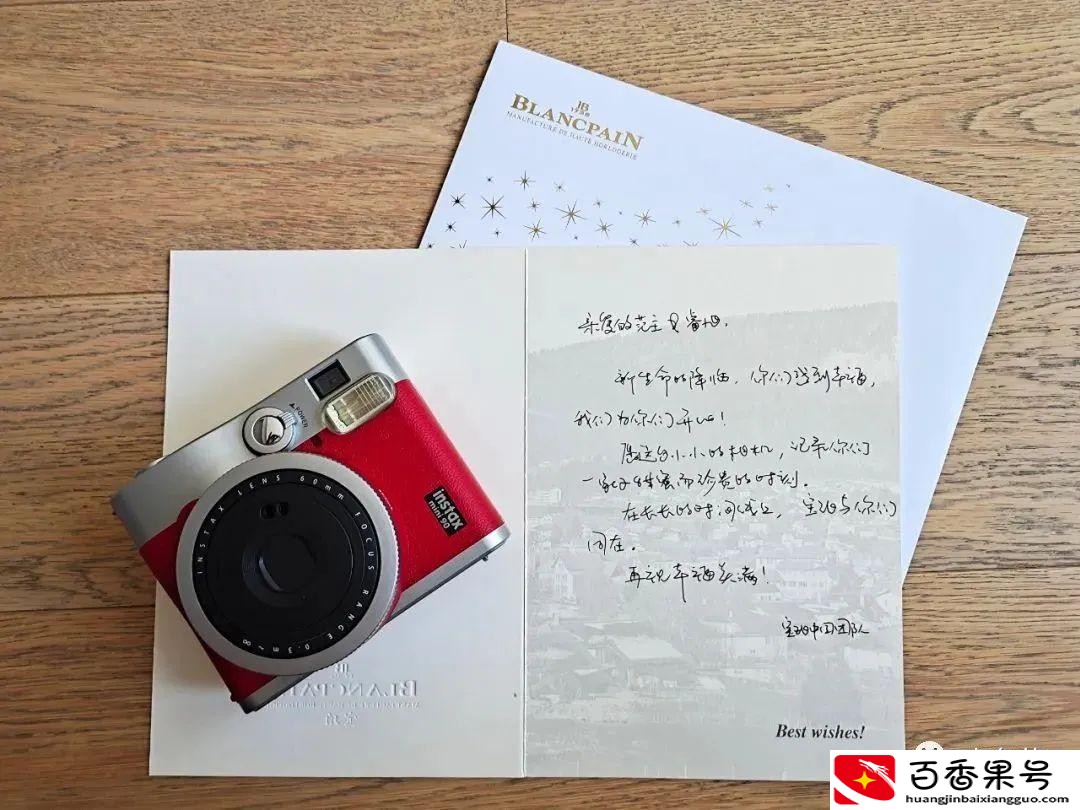 JB
1735
BLANCPAIN
MANUFACTURE DE HAUTE HORLOGERIE
亲爱的范主夫
新生命的降临，你们感到幸福，
我们为你们开心！
愿这台小小的相机，记录你们
一家子甜蜜而珍贵的时刻。
在长长的时间线上，宝珀与你们
同在。
再祝幸福美满！
宝珀中国团队
Best wishes!
POWER
INSTAX LENS 60mm FOCUS RANGE 0.3m~∞
instax
mini 90
JB
BLANCPAIN
宝珀
百香果号
huangjinbaixiangguo.com